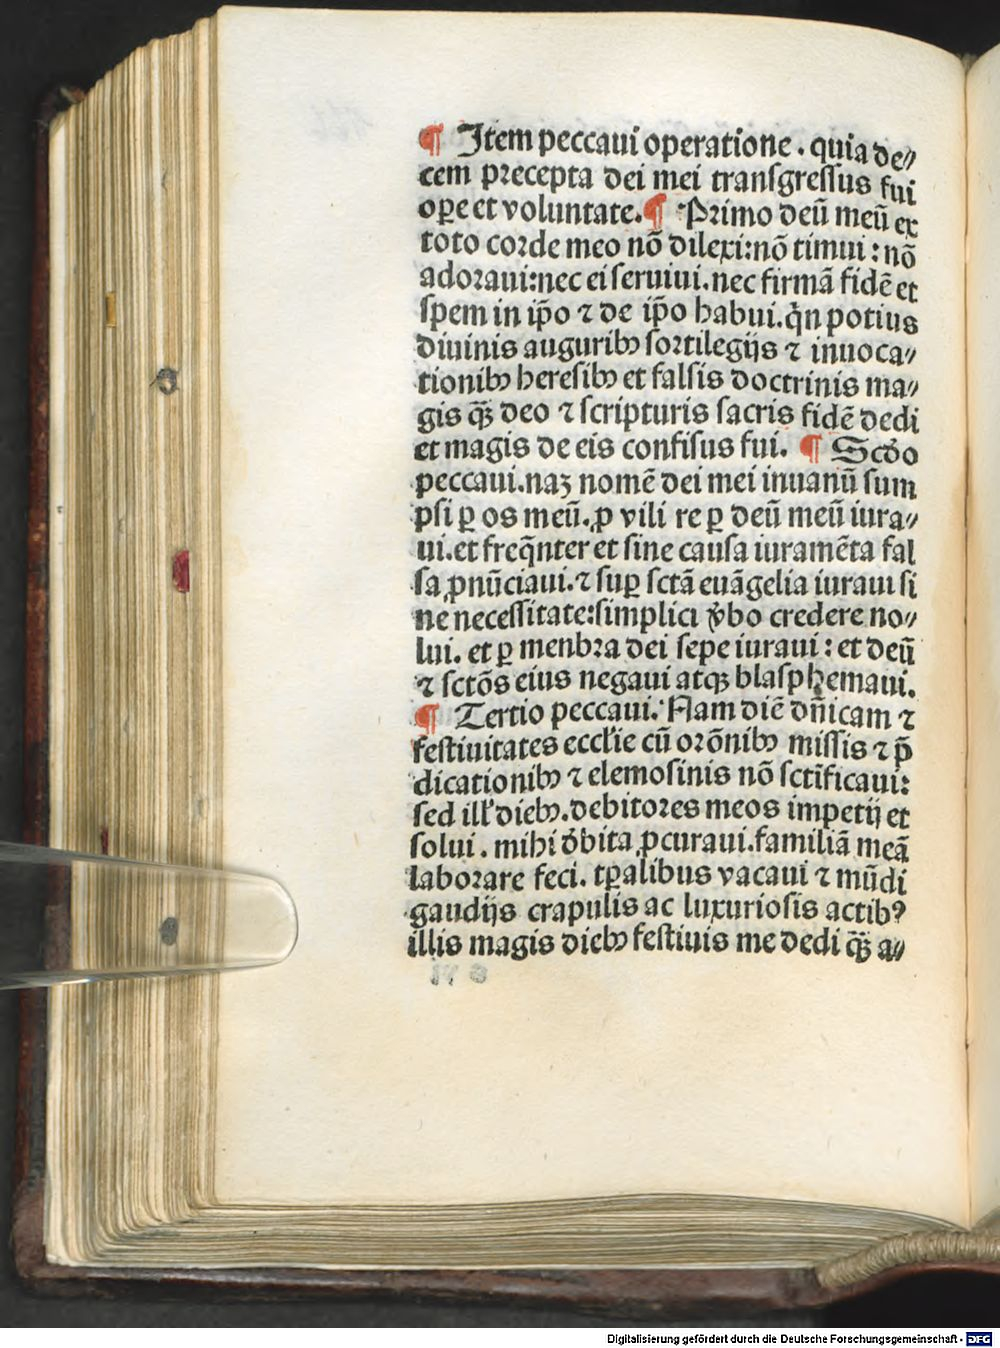 ¶ Item peccaui operatione . quia de⸗
cem precepta dei mei tranſgreſſus fui
oꝑe et voluntate. ¶ Primo deū meū ex
toto corde meo nō dilexi: nō timui : nō
adoraui: nec ei ſeruiui. nec firmā fidē et
ſpem in ip̄o ⁊ de ip̄o habui. q̄n potius
diuinis auguribꝰ ſortilegijs ⁊ inuoca⸗
tionibꝰ hereſibꝰ et falſis doctrinis ma⸗
gis qꝫ̄ deo ⁊ ſcripturis ſacris fidē dedi
et magis de eis confiſus fui. ¶ Scd̄o
peccaui. naꝫ nomē dei mei inuanū ſum
pſi ꝑ os meū. ꝓ vili re ꝑ deū meū iura⸗
ui. et freq̄nter et ſine cauſa iuramēta fal
ſa ꝓnūciaui. ⁊ suꝑ ſctā euāgelia iuraui ſi
ne neceſſitate: ſimplici v̓bo credere no⸗
lui. et ꝑ menbra dei ſepe iuraui : et deū
⁊ ſctōs eius negaui atqꝫ blaſphemaui.
¶ Tertio peccaui. Nam diē dn̄icam ⁊
feſtiuitates eccl̓ie cū orōnibꝰ miſſis ⁊ p̄
dicationibꝰ ⁊ elemoſinis nō ſctīficaui:
ſed ill̓ diebꝰ. debitores meos impetij et
ſolui . mihi d̓bita ꝓcuraui. familiā meā
laborare feci. tꝑalibus vacaui ⁊ mūdi
gaudijs crapulis ac luxurioſis actibꝰ
illis magis diebꝰ feſtiuis me dedi qꝫ̄ a⸗
Digitalisierung gefördert durch die Deutsche Forschungsgemeinschaft - DFG